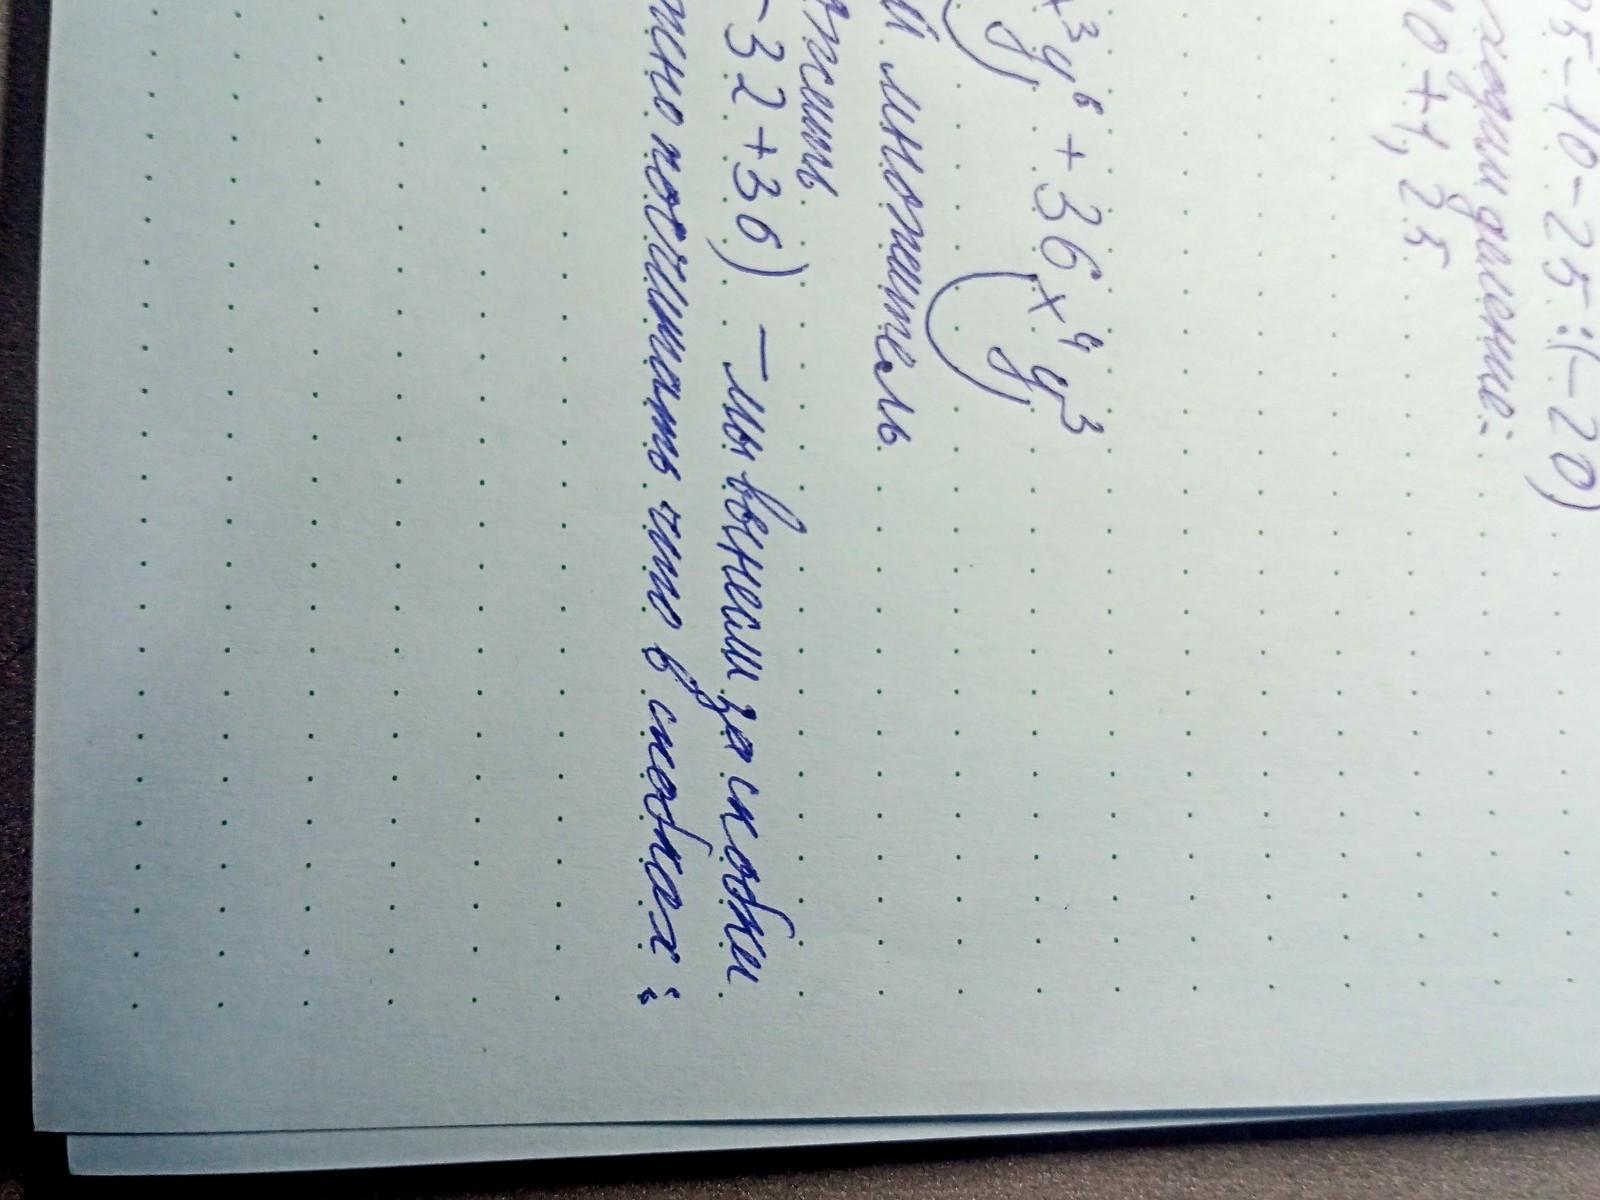 25-10-25:(-20)
ходим деление:
10+1,25
x³y⁶+36x⁴y³
y y
й множитель
ожить
-32+36) - мы вынесли за скобки
жно посчитать что в скобках: